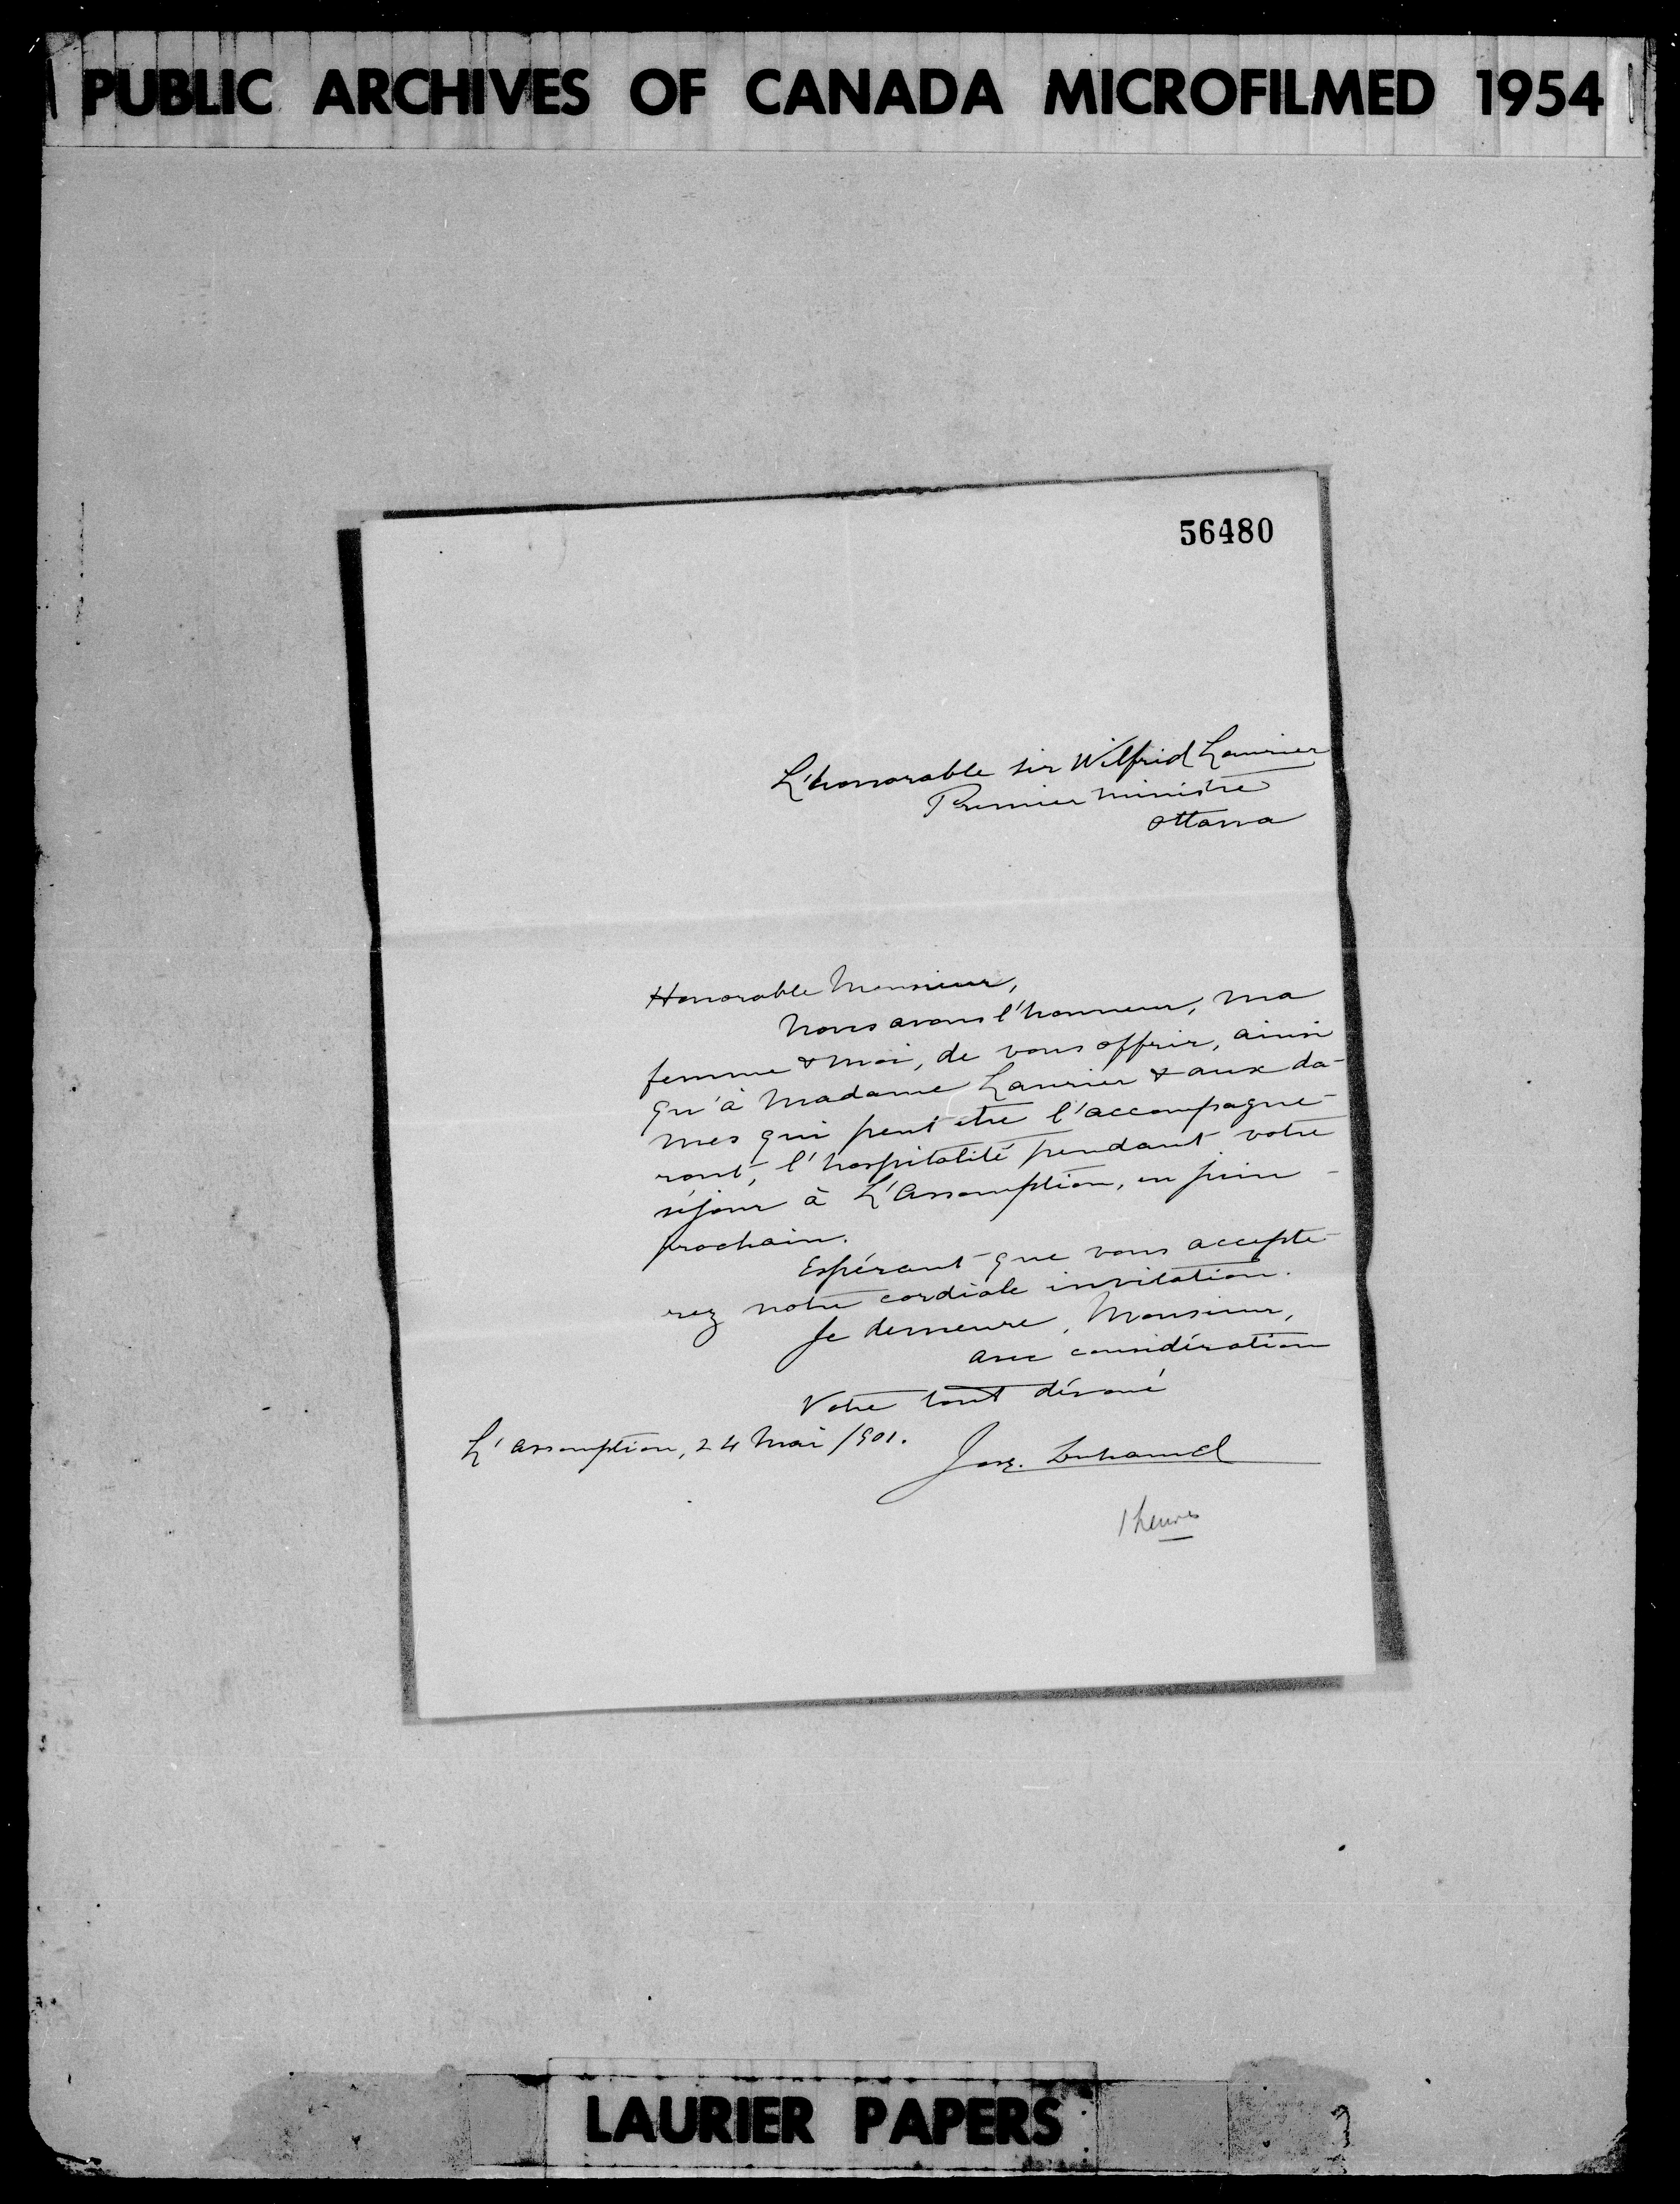 PUBLIC ARCHIVES OF CANADA MICROFILMED 1954
56480
L'honorable sir Wilfrid Laurier
Premier ministre
Ottawa
Honorable Monsieur,
Nous avons l'honneur, ma
femme & moi, de vous offrir, ainsi
qu'à Madame Laurier & aux da-
mes qui peut être l'accompagne-
ront, l'hospitalité pendant votre
séjour à L'Assomption, en juin
prochain.
Espérant que vous accepte-
rez notre cordiale invitation.
Je demeure, Monsieur,
avec considération
Votre tout dévoué
L'Assomption, 24 Mai 1901.
Jos. Duhamel
LAURIER PAPERS